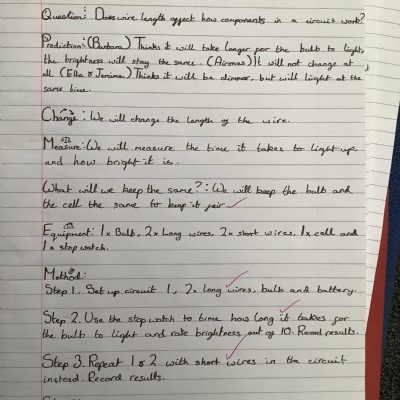 Question: Does wire length affect how components in a circuit work?
Prediction: (Barbara) Thinks it will take longer for the bulb to light,
the brightness will stay the same. (Airomas) It will not change at
all (Ella & Jerome) Thinks it will be dimmer, but will light at the
same time.
Change: We will change the length of the wire.
Measure: We will measure the time it takes to light up
and how bright it is.
What will we keep the same?: We will keep the bulb and
the cell the same to keep it fair
Equipment: 1x Bulb, 2x Long wires, 2x short wires, 1x cell and
1x stop watch.
Method:
Step 1. Set up circuit 1, 2x long wires, bulb and battery.
Step 2. Use the stop watch to time how long it takes for
the bulb to light and rate brightness out of 10. Record results.
Step 3. Repeat 1 & 2 with short wires in the circuit
instead. Record results.